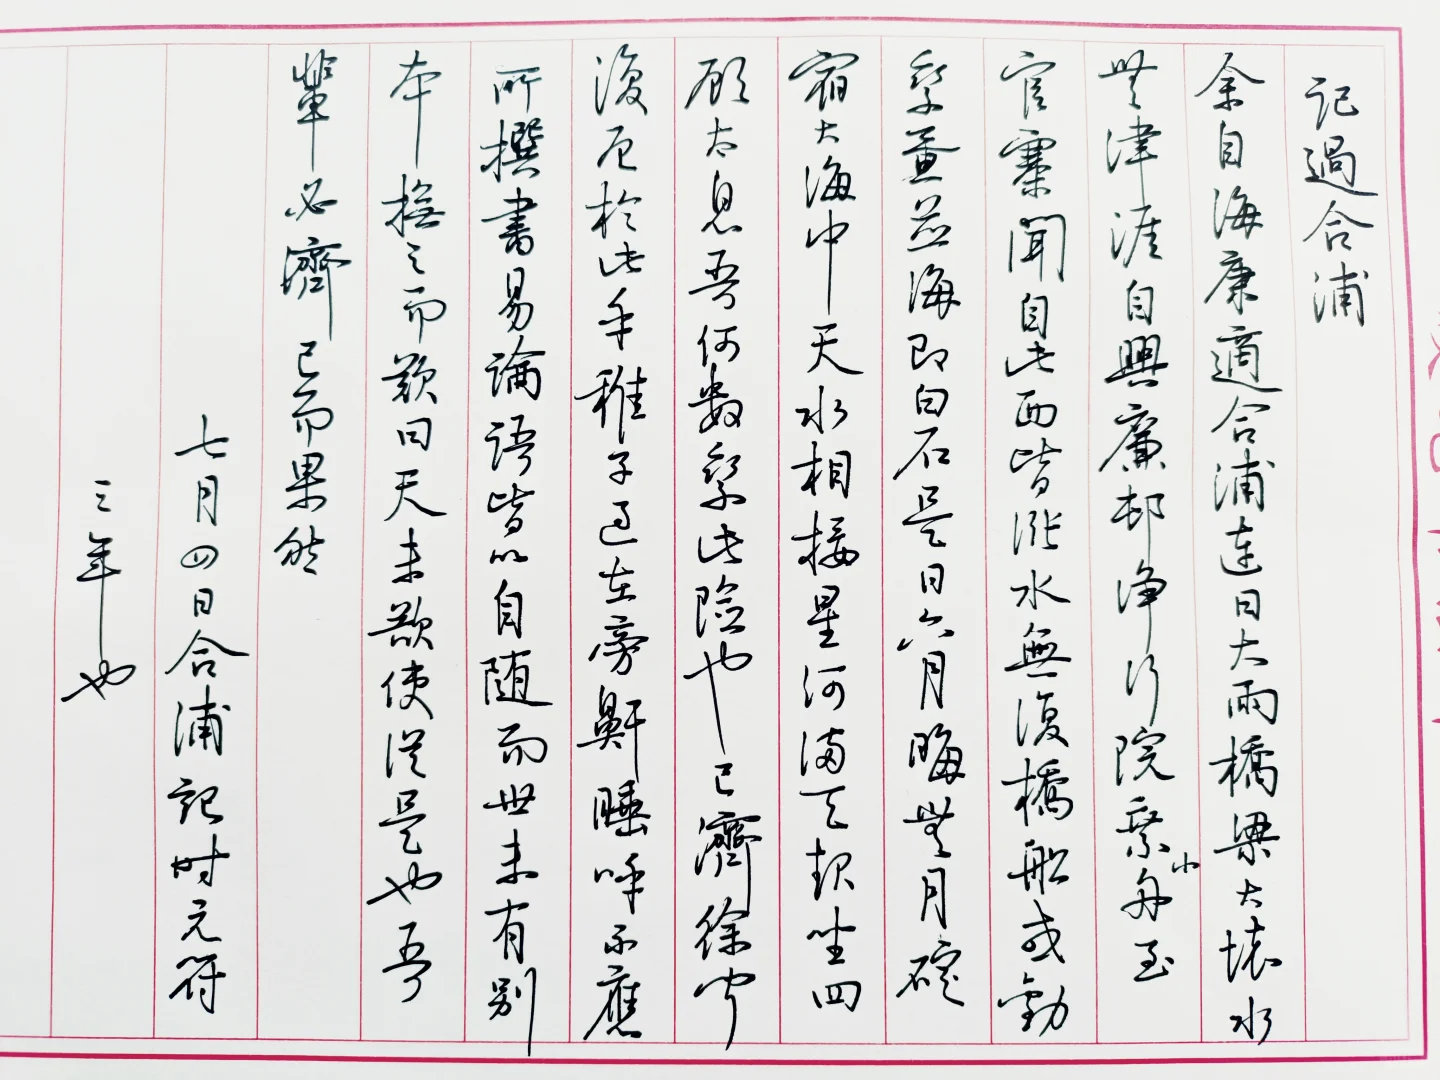 記過合浦
余自海康適合浦連日大雨橋梁大壞水
無津涯自興廉邨净行院乘小舟至
官寨聞自此西皆漲水無復橋船或勸
乘蜑並海即白石是日六月晦無月碇
宿大海中天水相接星河滿天起坐四
顧太息吾何數乘此險也已濟徐聞
復厄於此乎稚子過在旁鼾睡呼不應
所撰書易論語皆以自随而世未有别
本撫之而歎曰天未欲使從是也吾
輩必濟已而果然
七月四日合浦記时元符
三年也